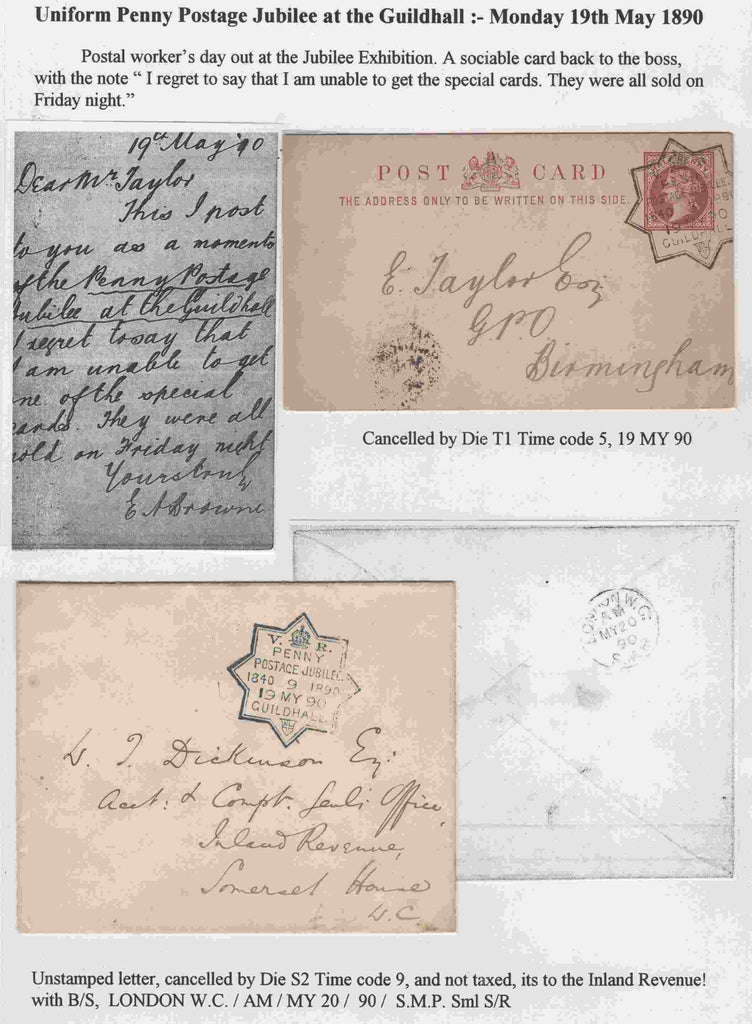 Uniform Penny Postage Jubilee at the Guildhall :- Monday 19th May 1890
Postal worker's day out at the Jubilee Exhibition. A sociable card back to the boss,
with the note " I regret to say that I am unable to get the special cards. They were all sold on
Friday night."
19th May 90
Dear Mr Taylor
This I post
to you as a momento
of the Penny Postage
Jubilee at the Guildhall
I regret to say that
I am unable to get
one of the special
cards. They were all
sold on Friday night
Yours truly
E A Browne
POST CARD
THE ADDRESS ONLY TO BE WRITTEN ON THIS SIDE.
1840
19 90
GUILDHALL
E. Taylor Esq
GPO
Birmingham
Cancelled by Die T1 Time code 5, 19 MY 90
LONDON W.C.
AM
MY 20
90
V. R.
PENNY
POSTAGE JUBILEE.
1840 9 1890
19 MY 90
GUILDHALL.
W. T. Dickinson Esq:
Acct: & Compt. Genls Office,
Inland Revenue,
Somerset House
W.C.
Unstamped letter, cancelled by Die S2 Time code 9, and not taxed, its to the Inland Revenue!
with B/S, LONDON W.C. / AM / MY 20 / 90 / S.M.P. Sml S/R